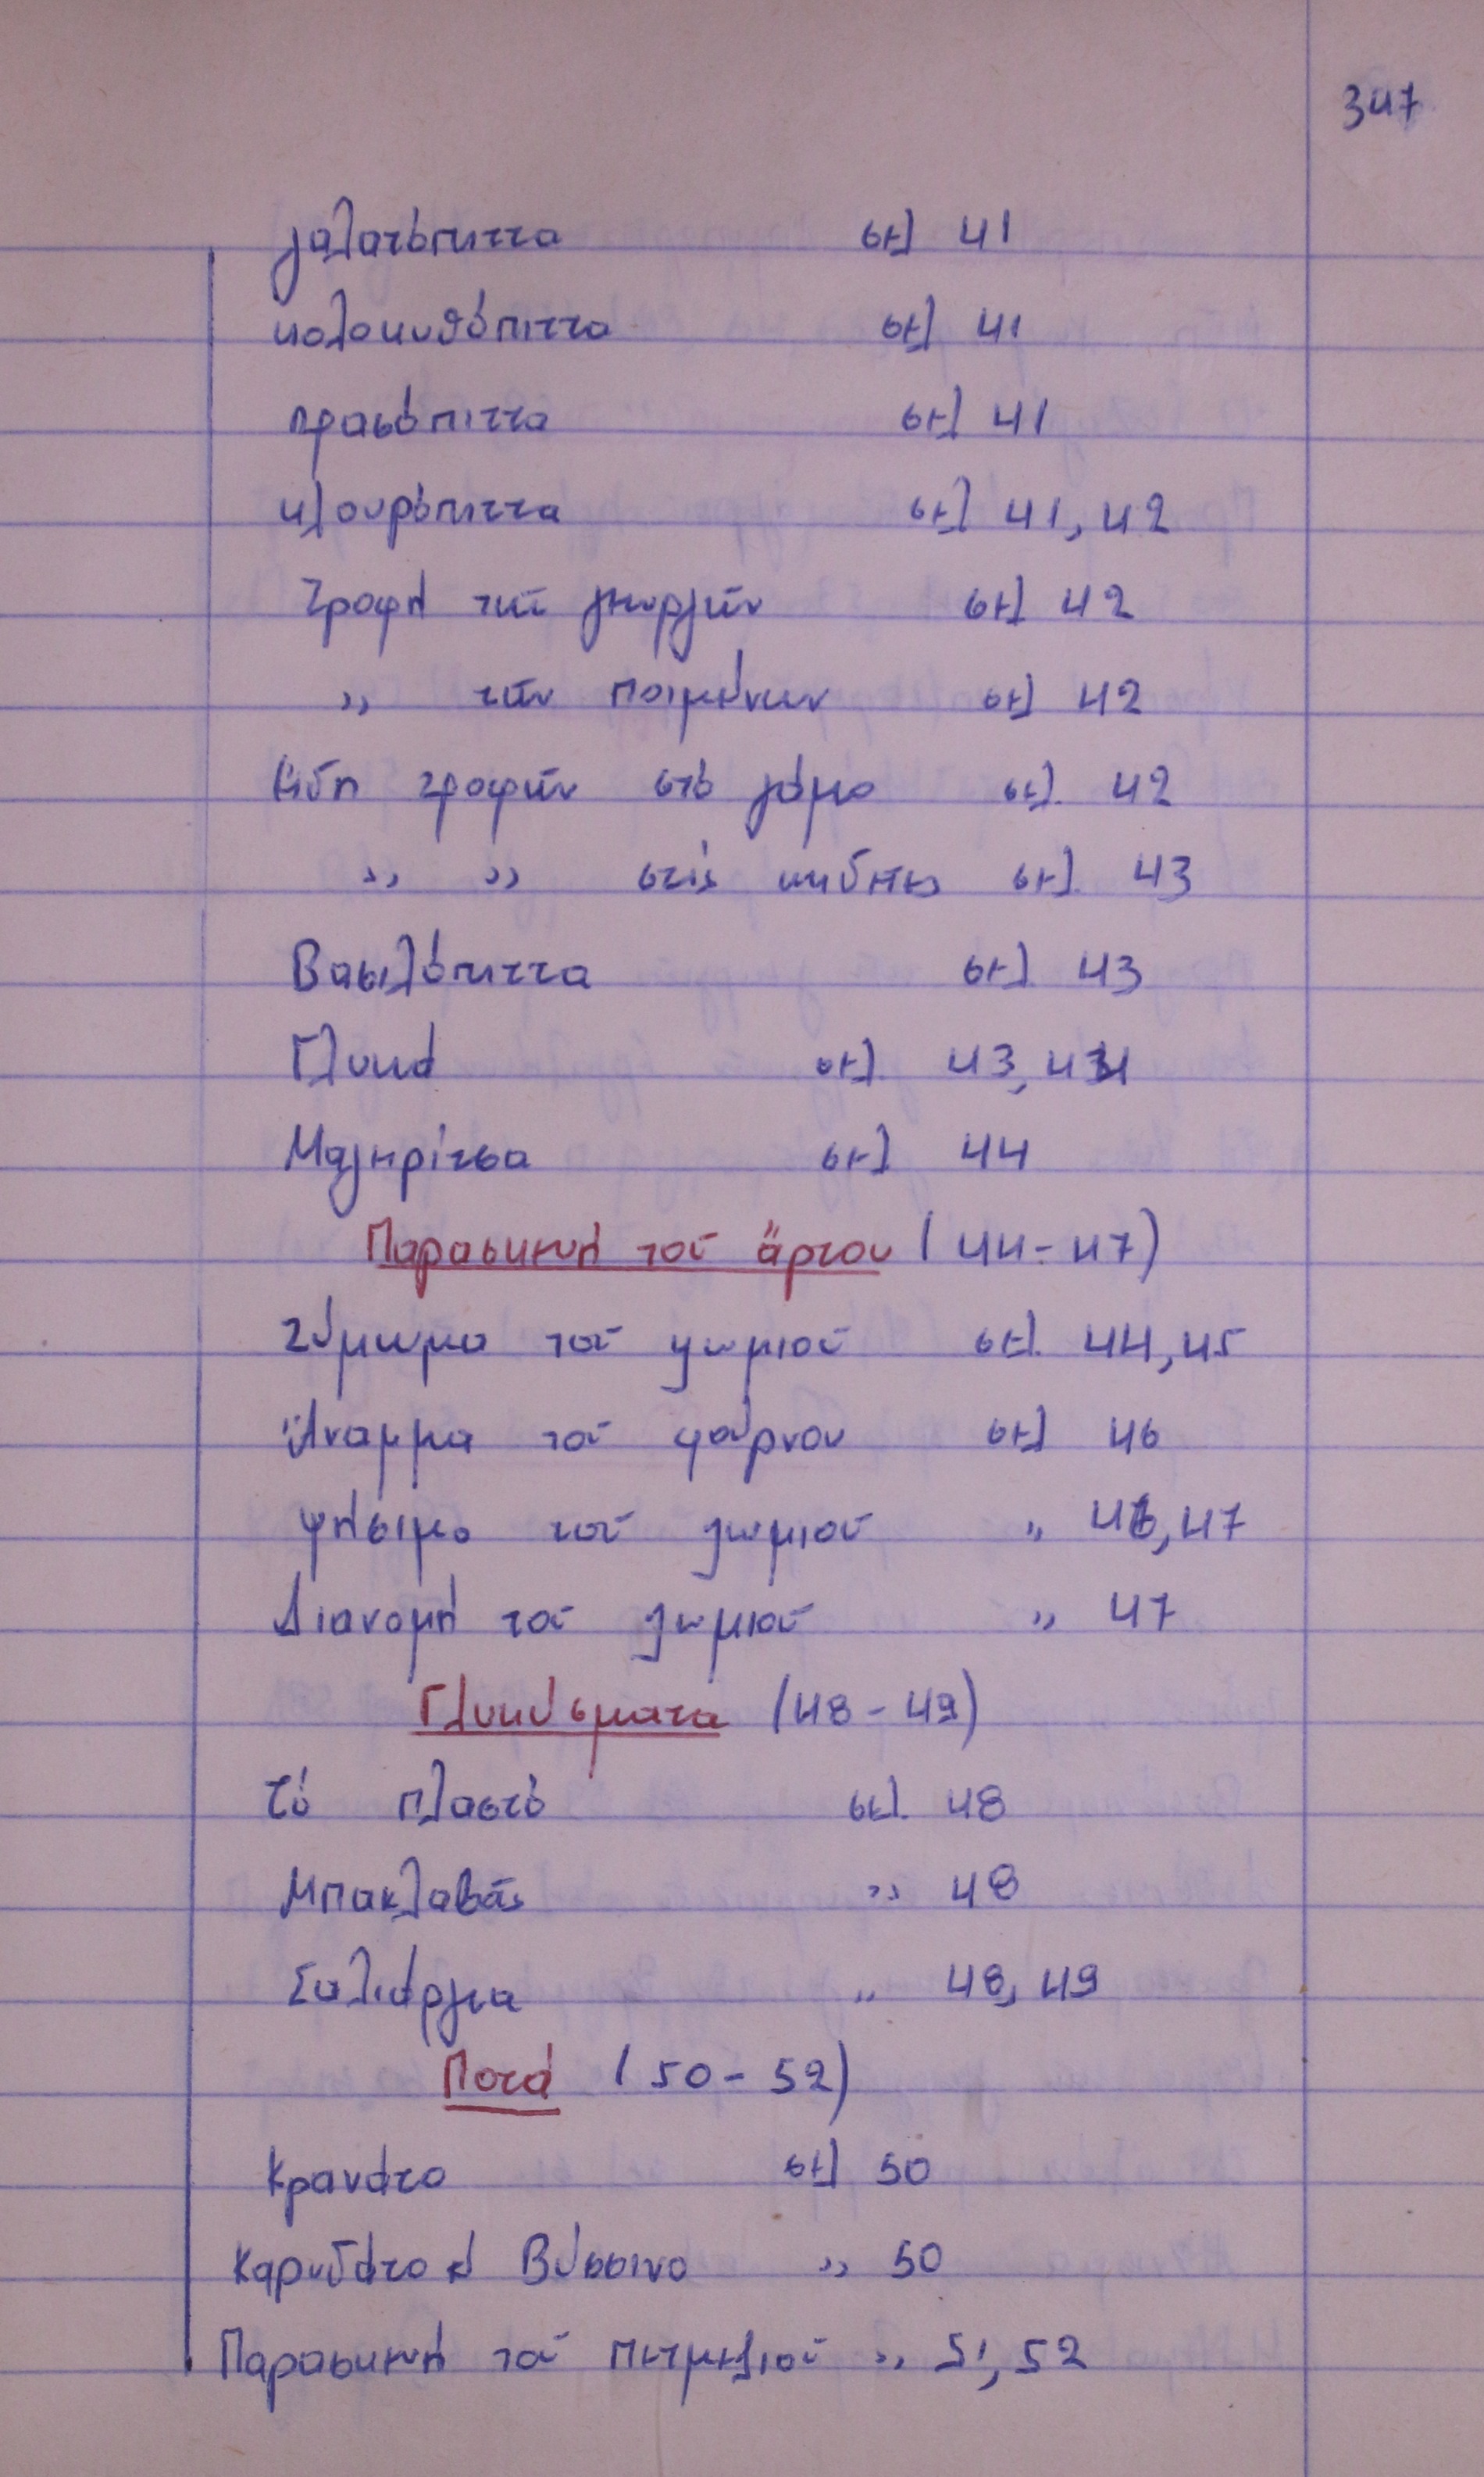 347
γαλατόπιττα σελ 41
κολοκυθόπιττα σελ 41
πρασόπιττα σελ 41
κλουρόπιττα σελ 41, 42
Τροφή τῶν γεωργῶν σελ 42
,, τῶν ποιμένων σελ 42
Εἴδη τροφῶν στό γάμο σελ. 42
,, ,, στίς κηδεῖες σελ. 43
Βασιλόπιττα σελ. 43
Γλυκά σελ. 43, 44
Μαγερίτσα σελ 44
Παρασκευή τοῦ ἄρτου (44-47)
Ζύμωμα τοῦ ψωμιοῦ σελ. 44, 45
Ἄναμμα τοῦ φούρνου σελ 46
Ψήσιμο τοῦ ψωμιοῦ ,, 46, 47
Διανομή τοῦ ψωμιοῦ ,, 47
Γλυκύσματα (48-49)
Τό πλαστό σελ. 48
Μπακλαβᾶς ,, 48
Σαλιάργια ,, 48, 49
Ποτά (50-52)
Κρανάτο σελ 50
Καρυδάτο ἤ Βύσσινο ,, 50
Παρασκευή τοῦ πετμεζιοῦ ,, 51, 52